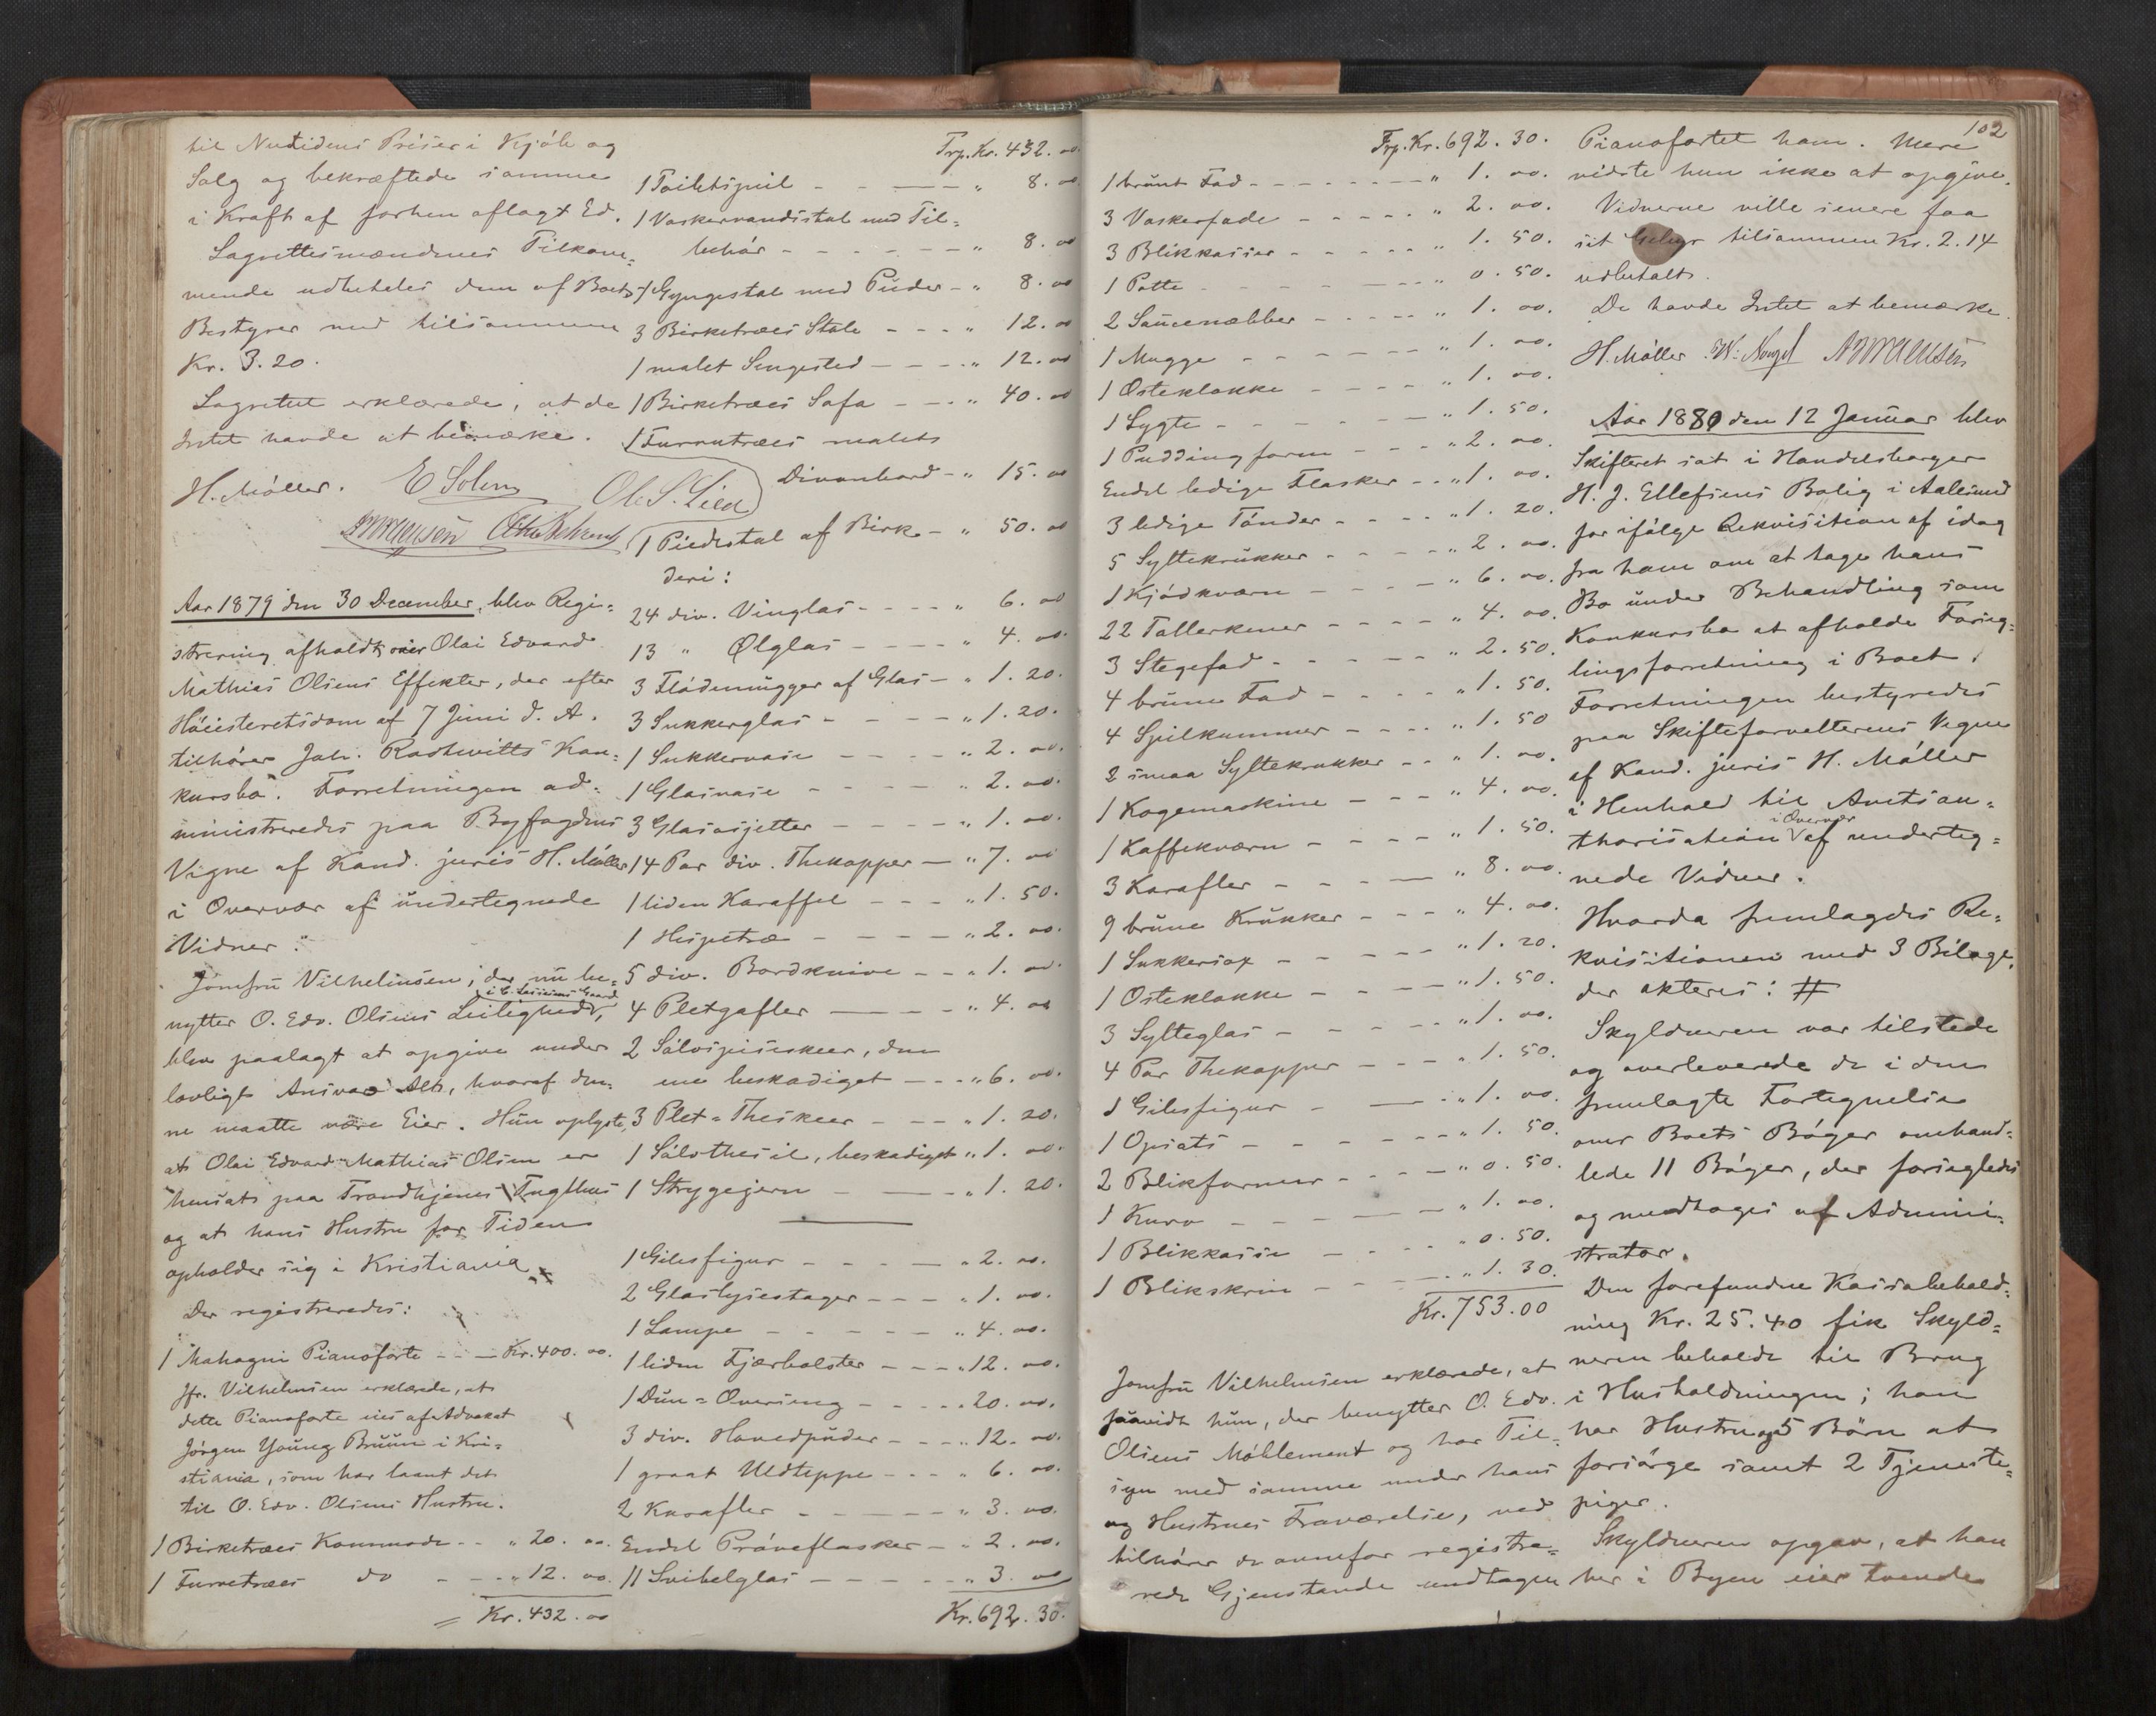 til Nutidens Priser i Kjøb og
Salg og bekræftede samme
i Kraft af forhen aflagt Ed.
Lagrettesmændenes Tilkom-
mende udbetales dem af Boets
Bestyrer med tilsammen
Kr. 3.20.
Lagrettet erklærede, at de
Intet havde at bemærke.
H. Møller. E Solem Ole S. Lied
Aar 1879 den 30 December, blev Regi-
strering afholdt over Olai Edvard
Mathias Olsens Effekter, der efter
Høiesteretsdom af 7 Juni d. A.
tilhører Joh. Kon-
kursbo. Forretningen ad-
ministreredes paa Byfogdens
Vegne af Kand. juris H. Møller
i Overvær af undertegnede
Vidner:
Jomfru Vilhelmsen, der nu be-
i C. Gaard
nytter O. Edv. Olsens Leilighed,
blev paalagt at opgive under
lovligt Ansvar Alt, hvoraf den-
ne maatte være Eier. Hun oplyste,
at Olai Edvard Mathias Olsen er
hensat paa Trondhjems Tugthus
og at hans Hustru for Tiden
opholder sig i Kristiania.
Der registreredes:
1 Mahagni Pianoforte - - - Kr. 400. 00.
Jfr. Vilhelmsen erklærede, at
dette Pianoforte eies af Advokat
Jørgen Young Bruun i Kri-
stiania, som har laant det
til O. Edv. Olsens Hustru.
1 Birketræes Kommode - - " 20. 00.
1 Furretræes do - - - " 12. 00.
= Kr. 432. 00
Trp. Kr. 432. 00.
1 Toiletspeil - - - " 8. 00
1 Vaskervandsstol med Til-
behør - - - " 8. 00
1 Gyngestol med Puder - " 8. 00
3 Birketræes Stole - - - " 12. 00
1 malet Sengested - - - " 12. 00
1 Birketræes Sofa - - - " 40. 00
1 Furrutræes malet
Divanbord - " 15. 00
1 Piedestal af Birk - " 50. 00
deri:
24 div. Vinglas - - - " 6. 00
13 " Ølglas - - - " 4. 00.
3 Flødemugger af Glas - " 1. 20.
3 Sukkerglas - - - " 1. 20.
1 Sukkervase - - - " 2. 00.
1 Glasvase - - - " 2. 00.
3 Glasasjetter - - - " 1. 00.
14 Par div. Thekopper - " 7. 00
1 liden Karaffel - - - " 1. 50.
1 Hespetræ - - - " 2. 00.
5 div. Bordknive - - " 1. 00.
4 Pletgafler - - - " 4. 00
2 Sølvspiseskeer, den
ene beskadiget - - - " 6. 00.
3 Plet-Theskeer - - - " 1. 20.
1 Sølvthesil, beskadiget " 1. 00.
1 Strygejern - - - " 1. 20.
1 Gibsfigur - - - " 2. 00.
2 Glaslysestager - - - " 1. 00.
1 Lampe - - - " 4. 00.
1 liden Fjærbolster - - - " 12. 00.
1 Dun-Overseng - - - " 20. 00.
3 div. Hovedpuder - - - " 12. 00.
1 graat Uldteppe - - - " 6. 00.
2 Karafler - - - " 3. 00.
Endel Prøveflasker - " 2. 00.
11 Svibelglas - - - " 3. 00
Kr. 692. 30.
Trp. Kr. 692. 30.
1 brunt Fad - - - " 1. 00.
3 Vaskefade - - - " 2. 00.
3 Blikkasser - - - " 1. 50.
1 Potte - - - " 0. 50.
2 Saucenæbber - - - " 1. 00.
1 Mugge - - - " 1. 00.
1 Osteklokke - - - " 1. 00.
1 Lygte - - - " 1. 50.
1 Puddingform - - - " 2. 00.
Endel ledige Flasker - - " 1. 00.
3 ledige Tønder - - - " 1. 20.
5 Syltekrukker - - - " 2. 00.
1 Kjødkværn - - - " 6. 00.
22 Tallerkener - - - " 4. 00.
3 Stegefad - - - " 2. 50.
4 brune Fad - - - " 1. 50.
4 Spilkummer - - - " 1. 50
2 smaa Syltekrukker - - " 1. 00.
1 Kogemaskine - - - " 4. 00.
1 Kaffekværn - - - " 1. 50.
3 Karafler - - - " 8. 00.
9 brune Krukker - - - " 4. 00.
1 Sukkersax - - - " 1. 20.
1 Osteklokke - - - " 1. 50.
3 Sylteglas - - - " 1. 00.
4 Par Thekopper - - - " 1. 50.
1 Gibsfigur - - - " 1. 00.
1 Opsats - - - " 1. 50.
2 Blikformer - - - " 0. 50.
1 Kurv - - - " 1. 00.
1 Blikkasse - - - " 0. 50.
1 Blikskrin - - - " 1. 30.
Kr. 753.00
Jomfru Vilhelmsen erklærede, at
saavidt hun, der benytter O. Edv.
Olsens Møblement og har Til-
syn med samme under hans
og Hustrues Fraværelse, ved
tilhører de ovenfor registre-
rede Gjenstande undtagen
102
Pianofortet ham. Mere
vidste hun ikke at opgive.
Vidnerne ville senere faa
sit Gebyr tilsammen Kr. 2.14
udbetalt.
De havde Intet at bemærke.
H. Møller.
Aar 1880 den 12 Januar blev
Skifteret sat i Handelsborger
H. J. Ellefsens Bolig i Aalesund
for ifølge Rekvisition af idag
fra ham om at tage hans
Bo under Behandling som
Konkursbo at afholde Forseg-
lingsforretning i Boet.
Forretningen bestyredes
paa Skifteforvalterens Vegne
af Kand. juris H. Møller
i Henhold til Amtsau-
i Overvær
thorisation af underteg-
nede Vidner.
Hvorda fremlagdes Re-
kvisitionen med 3 Bilage,
der akteres: #
Skyldneren var tilstede
og overleverede de i den
fremlagte Fortegnelse
over Boets Bøger omhand-
lede 11 Bøger, der forsegledes
og medtoges af Admini-
strator.
Den forefundne Kassabehold-
ning Kr. 25.40 fik Skyld-
neren beholde til Brug
i Husholdningen; han
har Hustru og 5 Børn at
forsørge samt 2 Tjeneste-
piger.
Skyldneren opgav, at han
her i Byen eier tvende